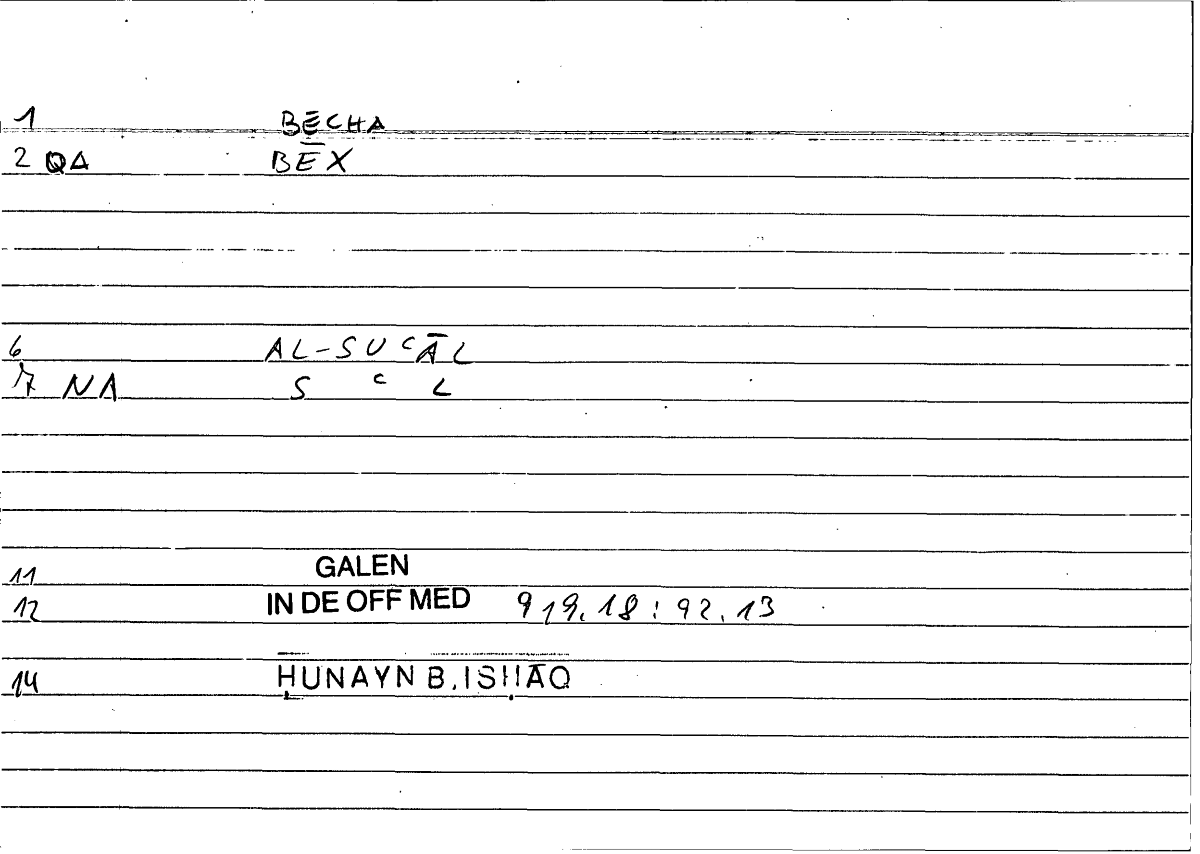 1 BĒCHA
2 QA BĒX
6 AL-SUʿĀL
7 NA S ʿ L
11 GALEN
12 IN DE OFF MED 919.18 : 92.13
14 ḤUNAYN B. ISḤĀQ